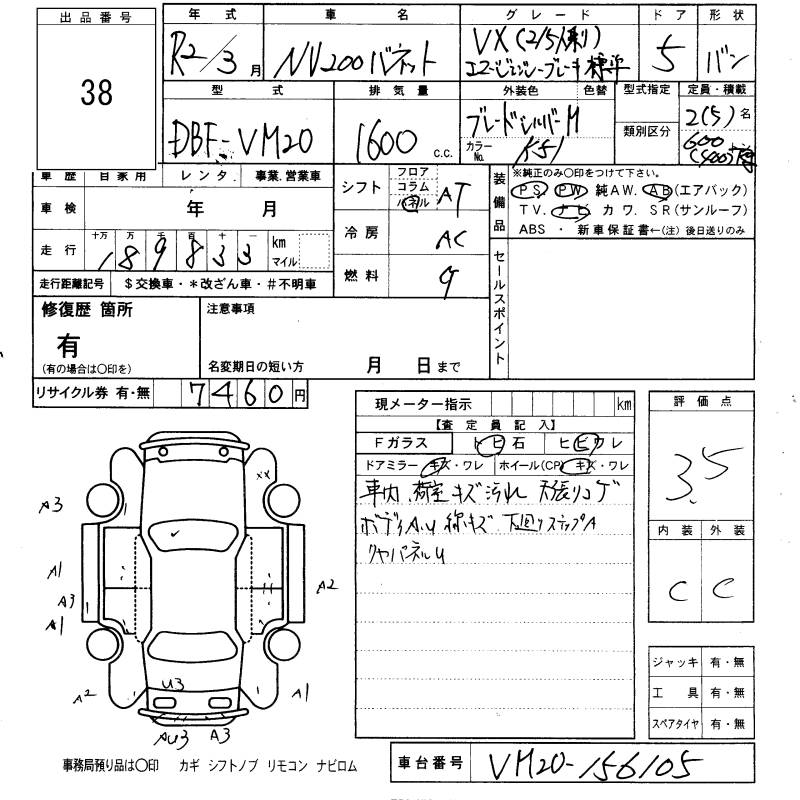 出品番号
38
年式
R2/3月
車名
NV200バネット
グレード
VX(2/5人乗り)
エマージェンシーブレーキ 標準
ドア
5
形状
バン
型式
DBF-VM20
排気量
1600 c.c.
外装色 色替
ブレードシルバーM
カラーNo. K51
型式指定
類別区分
定員・積載
2(5)名
600
車歴 自家用 レンタ 事業.営業車
車検 年 月
走行 十万 万 千 百 十 一
189833 km マイル
走行距離記号 $交換車・*改ざん車・#不明車
シフト フロア コラム パネル AT
冷房 AC
燃料 G
装備品
※純正のみ〇印をつけて下さい。
PS PW 純AW. AB(エアバック)
TV. ナビ カワ. SR(サンルーフ)
ABS ・ 新車保証書←(注)後日送りのみ
セールスポイント
修復歴 箇所
有
(有の場合は〇印を)
注意事項
名変期日の短い方 月 日まで
リサイクル券 有・無 7460円
現メーター指示 km
【査定員記入】
Fガラス トビ石 ヒビワレ
ドアミラー キズ・ワレ ホイール(CP) キズ・ワレ
車内、荷室キズ汚れ 天張りコゲ
ボディA.U 線キズ 下廻りステップA
リヤパネルU
評価点
3.5
内装 外装
C C
ジャッキ 有・無
工具 有・無
スペアタイヤ 有・無
XX
A3
A1
A3
A1
A2
A2
U3
A1
AU3 A3
事務局預り品は〇印 カギ シフトノブ リモコン ナビロム
車台番号 VM20-156105